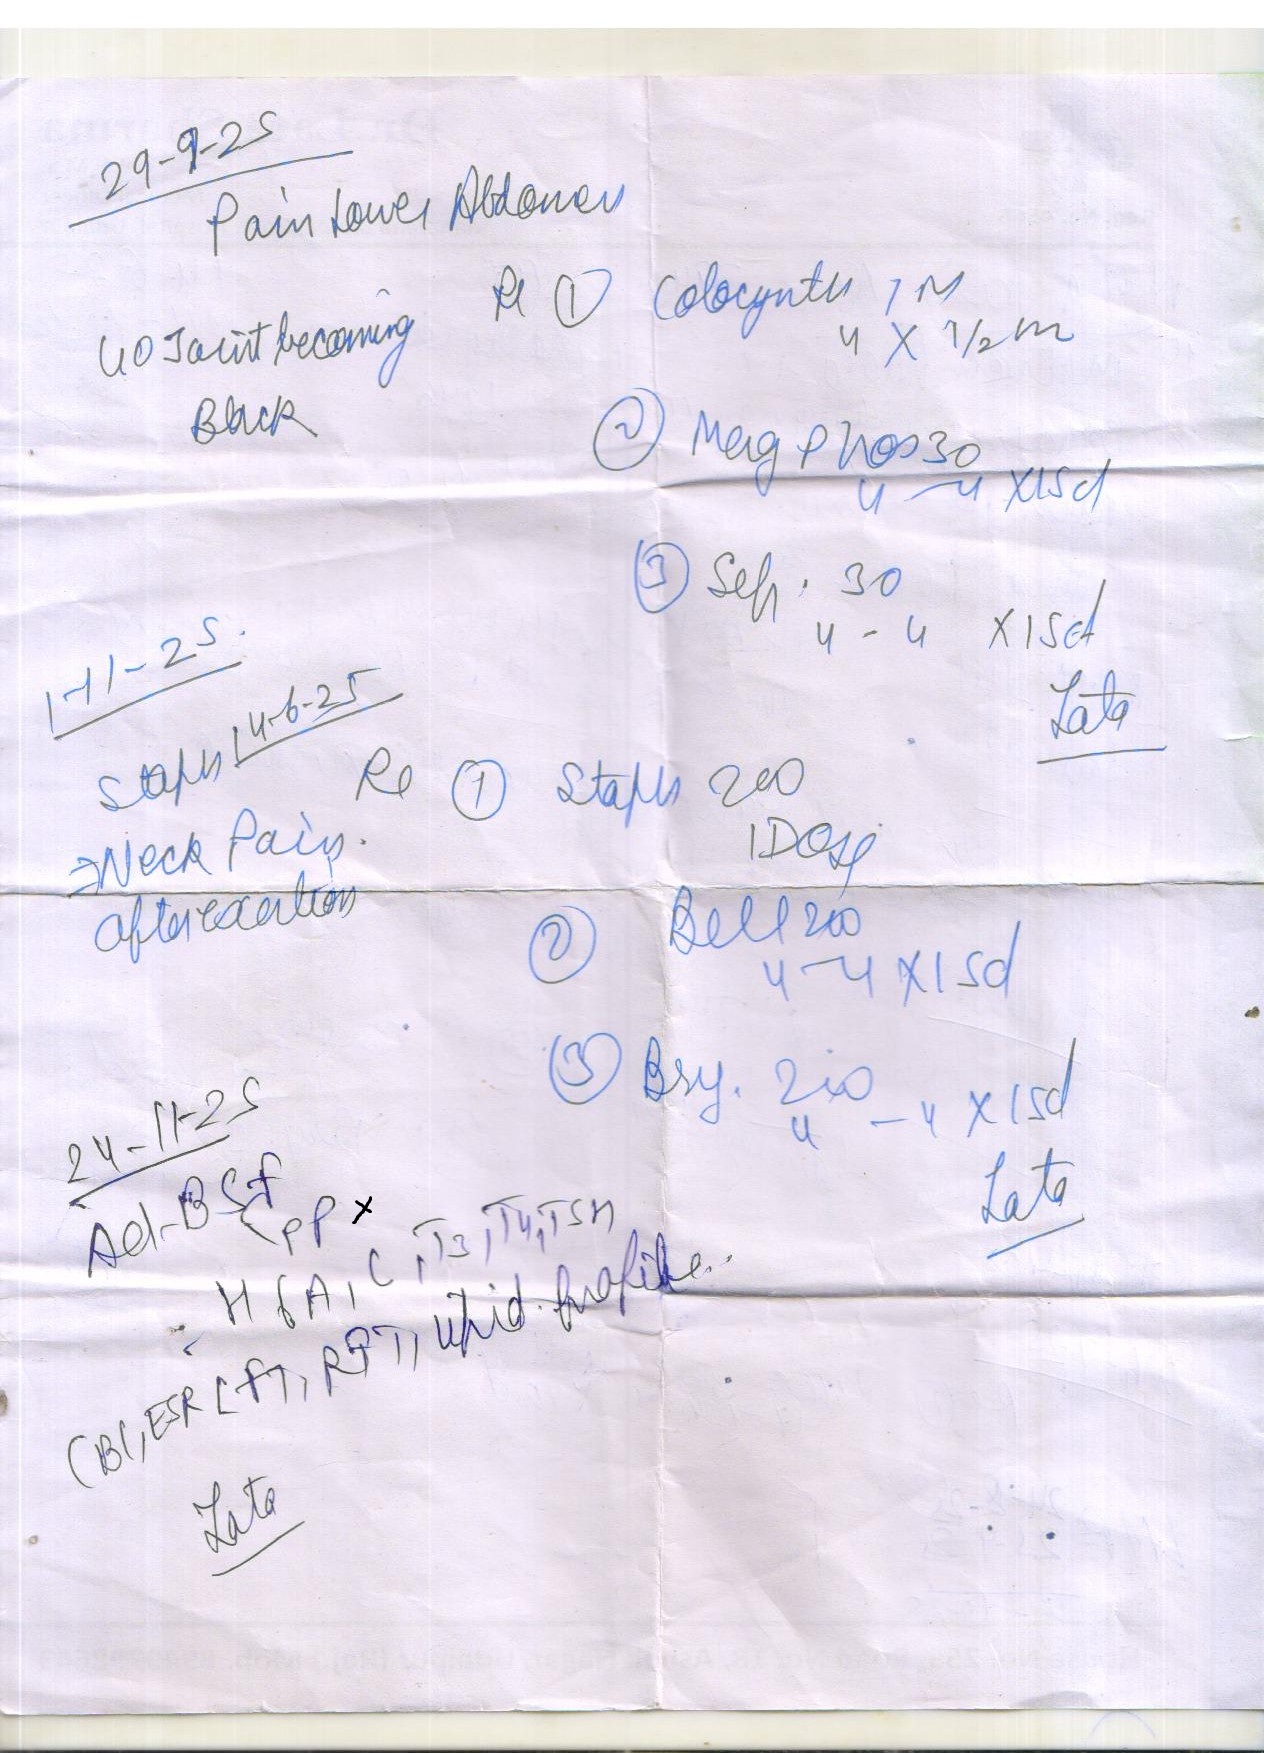 29-9-25
Pain Lower Abdomen
Rx ① Colocynth 1M
4 X 1/2 m
Joint becoming
Black
② Mag Phos 30
4 - 4 X 15d
③ Sep. 30
4 - 4 X 15d
Lata
1-11-25.
Staph 14-6-25
Rx ① Staph 200
1 Dose
⇒ Neck Pain.
after exertion
② Bell 200
4 - 4 X 15d
③ Bry. 200
4 - 4 X 15d
Lata
24-11-25
Ad-BSF
PP X
- HbA1C, T3, T4, TSH
CBC, ESR LFT, RFT, lipid profile..
Lata